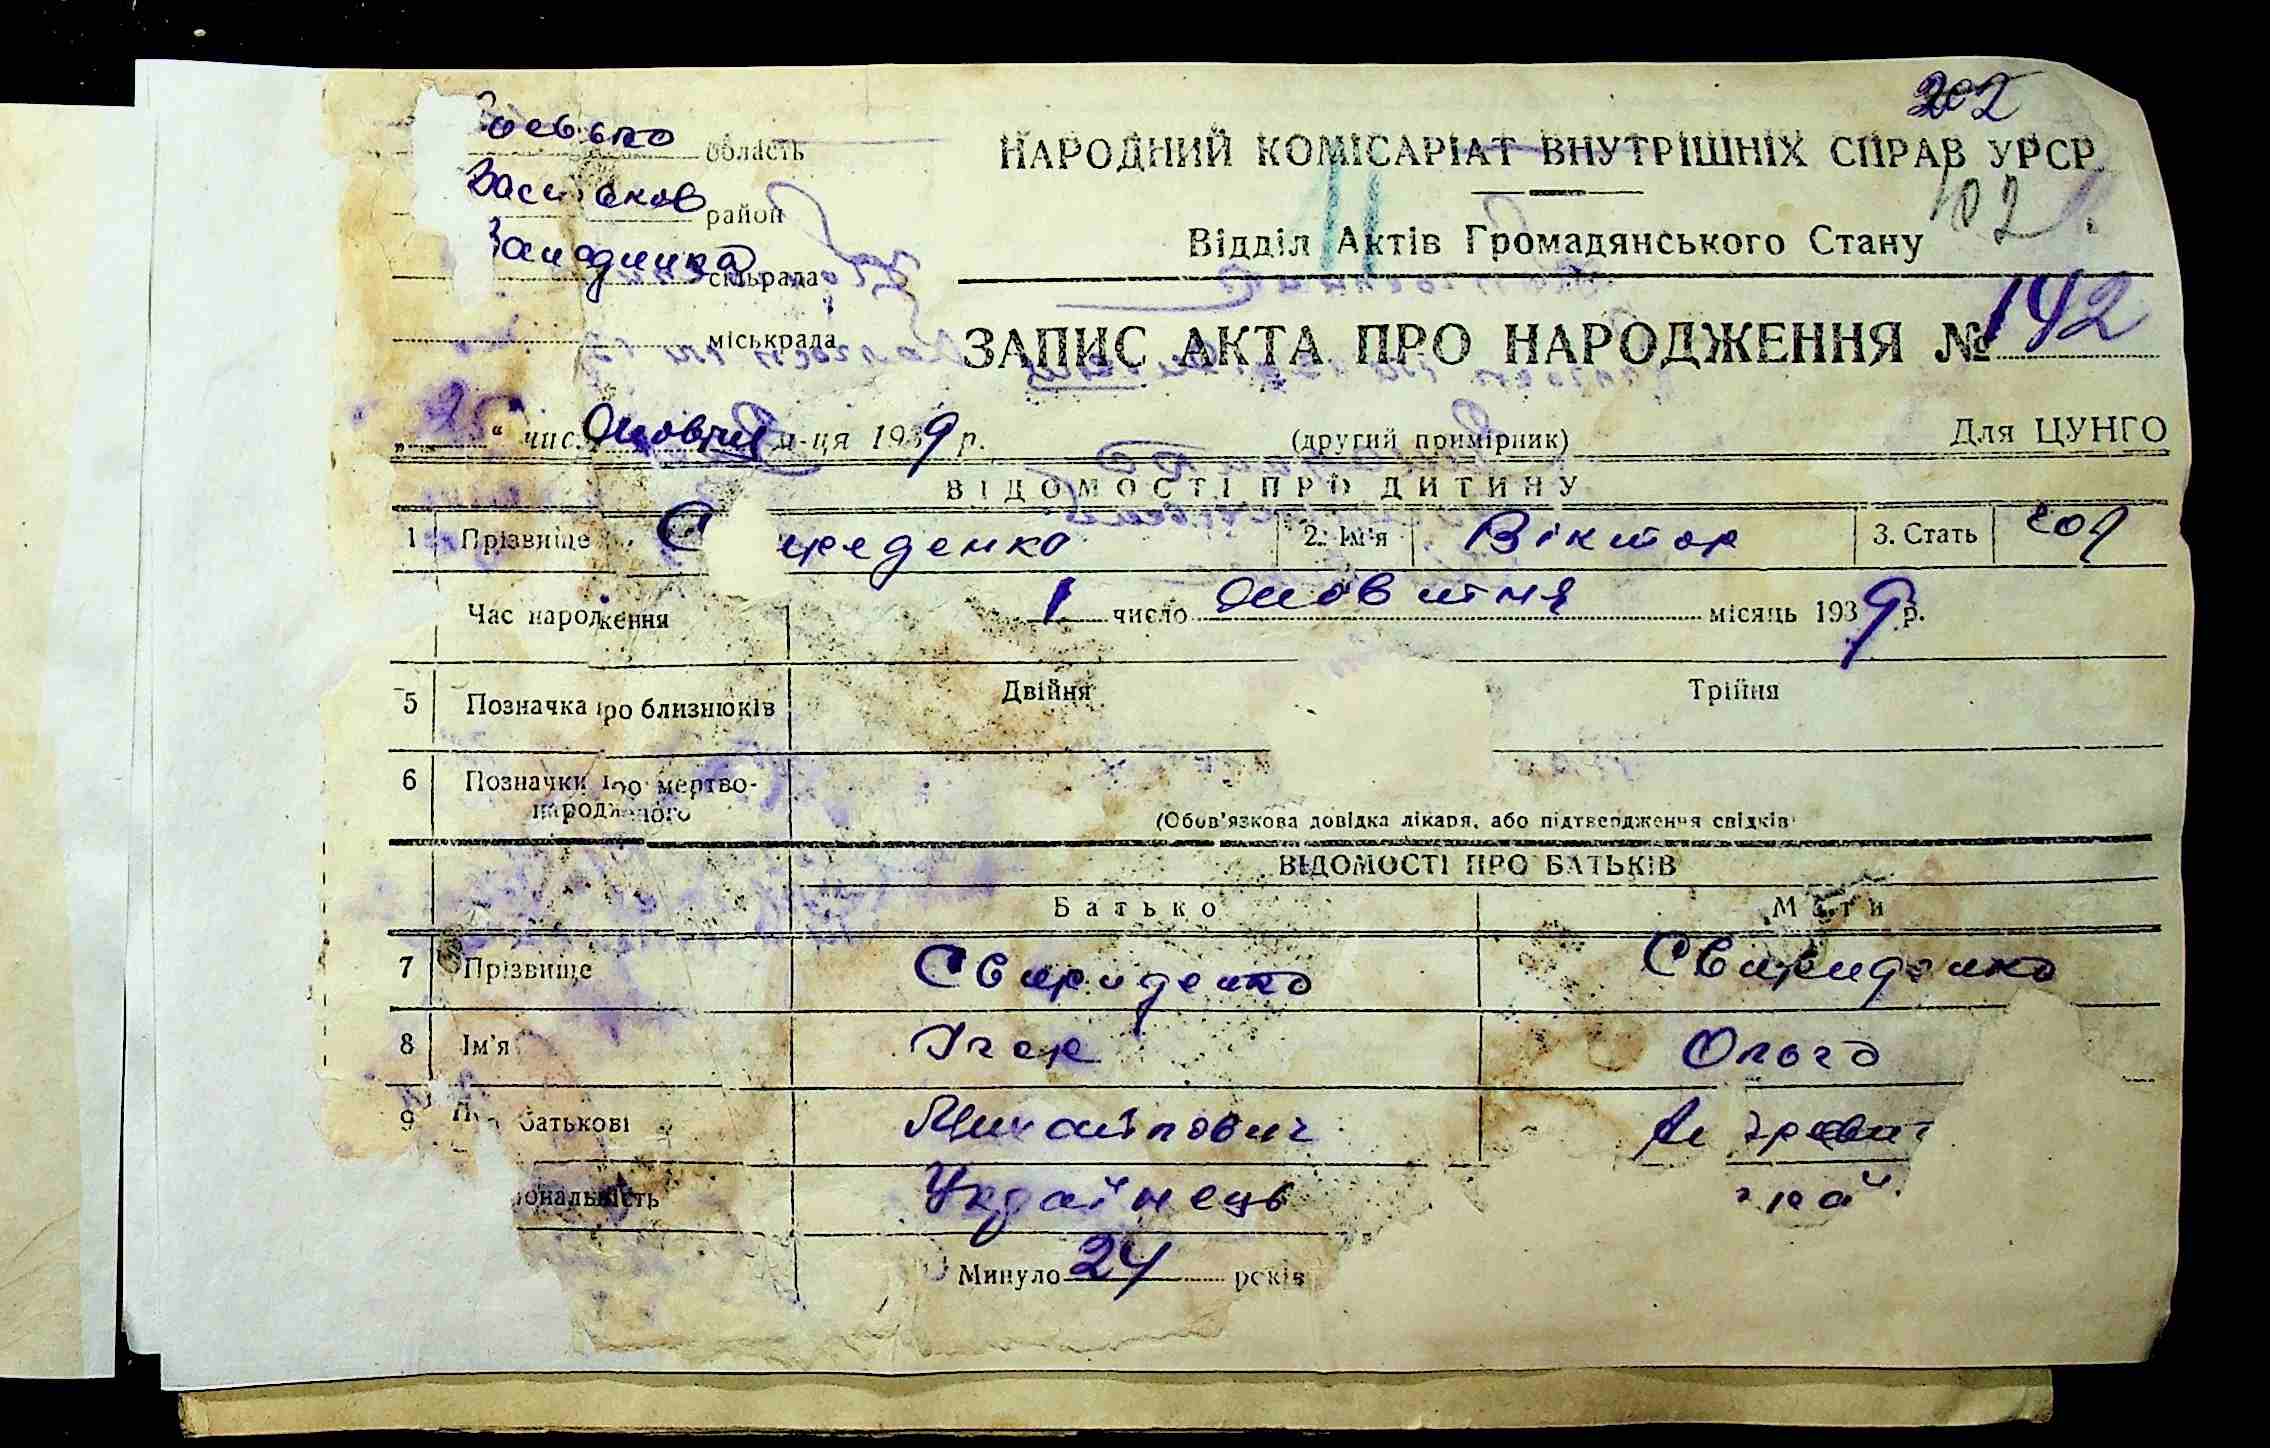 202
область
район
сільрада
міськрада
НАРОДНИЙ КОМІСАРІАТ ВНУТРІШНІХ СПРАВ УРСР
102
Відділ Актів Громадянського Стану
ЗАПИС АКТА ПРО НАРОДЖЕННЯ № 142
„25“ числ Жовтня м-ця 1939 р.
(другий примірник)
Для ЦУНГО
ВІДОМОСТІ ПРО ДИТИНУ
1 Прізвище С иреденко 2. Ім'я Віктор 3. Стать чол
Час народження 1 число Жовтня місяць 1939 р.
5 Позначка про близнюків Двійня Трійня
6 Позначки про мертво-
народженого
(Обов'язкова довідка лікаря, або підтвердження свідків)
ВІДОМОСТІ ПРО БАТЬКІВ
Батько Мати
7 Прізвище Свириденко Свириденко
8 Ім'я Ігор Ольга
9 По батькові Михайлович
ональність Українець
Минуло 24 років